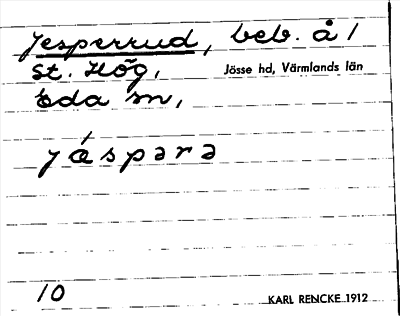 Jesperrud, beb. å 1
St. Hög,
Jösse hd, Värmlands län
Eda sn,
jáspərə
10
KARL RENCKE 1912